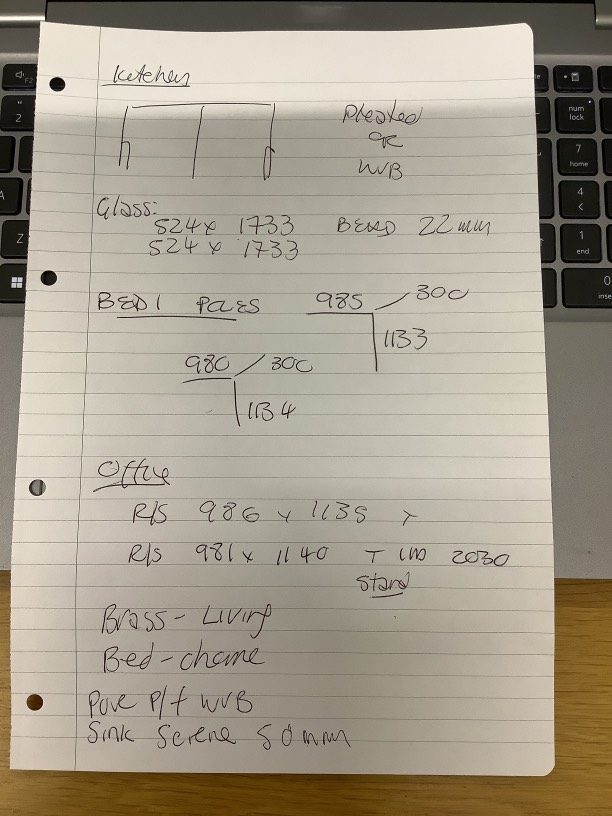 Kitchen
Pleated
or
WVB
Glass:
524 x 1733 BEAD 22mm
524 x 1733
BED 1 POLES 985 / 300
1133
980 / 300
1134
Office
R/S 986 x 1135 T
R/S 981 x 1140 T 2030
Stand
Brass - Living
Bed - chome
Pure P/t WVB
Sink Serene 50mm